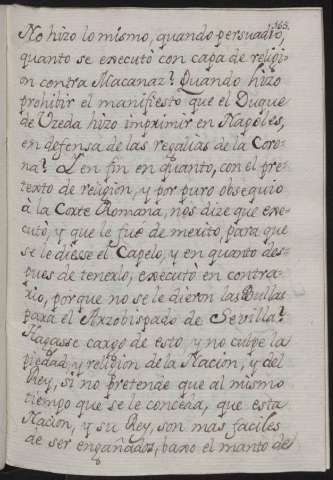 365.
No hizo lo mismo, quando persuadió,
quanto se executò con capa de religi-
on contra Macanaz? Quando hizo
prohibir el manifiesto que el Duque
de Uzeda hizo imprimir en Napoles,
en defensa de las regalias de la Coro-
na? Y en fin en quanto, con el pre-
texto de religion, y por puro obsequio
à la Corte Romana, nos dize que exe-
cutò, y que le fuè de merito, para que
se le diesse el Capelo, y en quanto des-
pues de tenerlo, executò en contra-
rio, porque no se le dieron las Bullas
para el Arzobispado de Sevilla?
Hagasse cargo de esto, y no culpe la
piedad, y religion de la Nacion, y del
Rey, si no pretende que al mismo
tiempo que se le conceda, que esta
Nacion, y su Rey, son mas faciles
de ser engañados, baxo el manto de